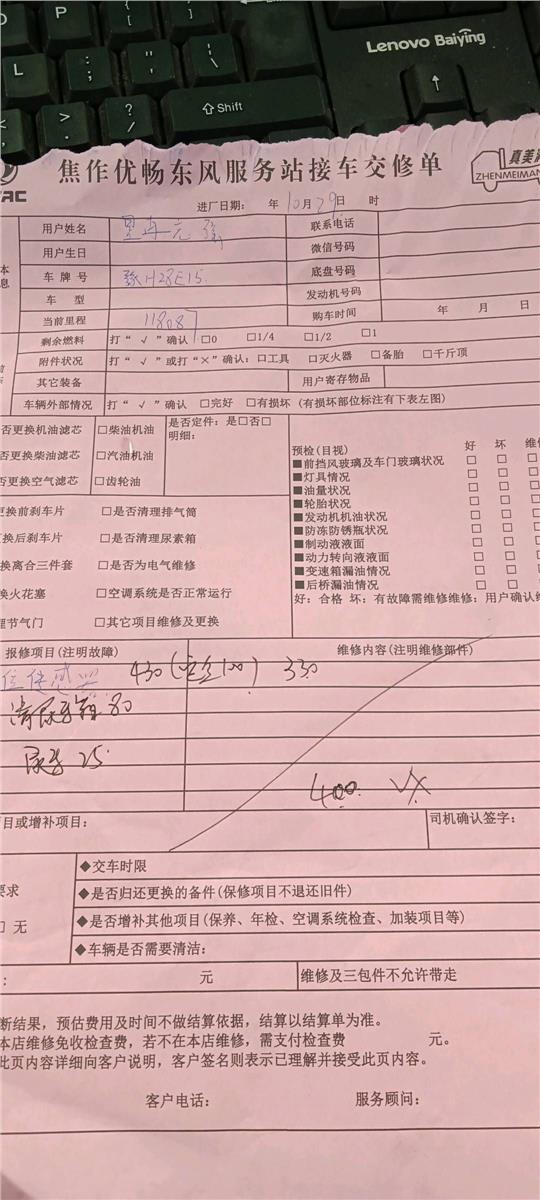 Lenovo Baiying
P
{
[
}
]
|
\
L
:
;
"
'
↑
<
,
>
.
?
/
⇧Shift
焦作优畅东风服务站接车交修单
ZHENMEIMAN
进厂日期: 年 10月29日 时
用户姓名
联系电话
用户生日
微信号码
车牌号 豫H28E15
底盘号码
车 型
发动机号码
当前里程 118087
购车时间 年 月 日
剩余燃料 打“√”确认 □0 □1/4 □1/2 □1
附件状况 打“√”或打“×”确认: □工具 □灭火器 □备胎 □千斤顶
其它装备
用户寄存物品
车辆外部情况 打“√”确认 □完好 □有损坏 (有损坏部位标注有下表左图)
否更换机油滤芯 □柴油机油
是否定件: 是□否□
明细:
否更换柴油滤芯 □汽油机油
否更换空气滤芯 □齿轮油
预检(目视) 好 坏 维
■前挡风玻璃及车门玻璃状况 □ □ □
■灯具情况 □ □ □
■油量状况 □ □ □
■轮胎状况 □ □ □
■发动机机油状况 □ □ □
■防冻防锈瓶状况 □ □ □
■制动液液面 □ □ □
■动力转向液液面 □ □ □
■变速箱漏油情况 □ □ □
■后桥漏油情况 □ □ □
好: 合格 坏: 有故障需维修维修: 用户确认维
更换前刹车片 □是否清理排气筒
换后刹车片 □是否清理尿素箱
换离合三件套 □是否为电气维修
换火花塞 □空调系统是否正常运行
理节气门 □其它项目维修及更换
报修项目(注明故障)
维修内容(注明维修部件)
430 ( 100) 330
清尿素箱 80
尿素 25
400. VX
目或增补项目:
司机确认签字:
◆交车时限
要求
◆是否归还更换的备件(保修项目不退还旧件)
□ 无
◆是否增补其他项目(保养、年检、空调系统检查、加装项目等)
◆车辆是否需要清洁:
: 元
维修及三包件不允许带走
断结果，预估费用及时间不做结算依据，结算以结算单为准。
本店维修免收检查费，若不在本店维修，需支付检查费 元。
此页内容详细向客户说明，客户签名则表示已理解并接受此页内容。
客户电话: 服务顾问: